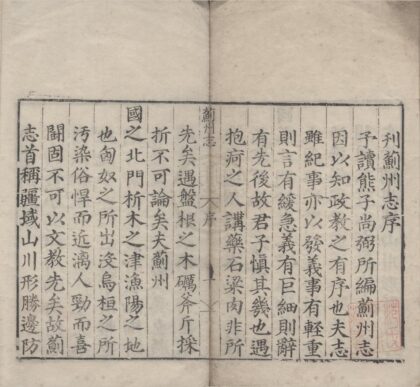 刊薊州志序
予讀熊子尚弼所編薊州志
因以知政教之有序也夫志
雖紀事亦以發義事有輕重
則言有緩急義有巨細則辭
有先後故君子慎其幾也遇
抱疴之人講藥石粱肉非所
薊州志 序
先矣遇盤根之木礪斧斤採
折不可論矣夫薊州
國之北門析木之津漁陽之地
也匈奴之所出没烏桓之所
污染俗悍而近漓人勁而喜
鬪固不可以文教先矣故薊
志首稱疆域山川形勝邊防